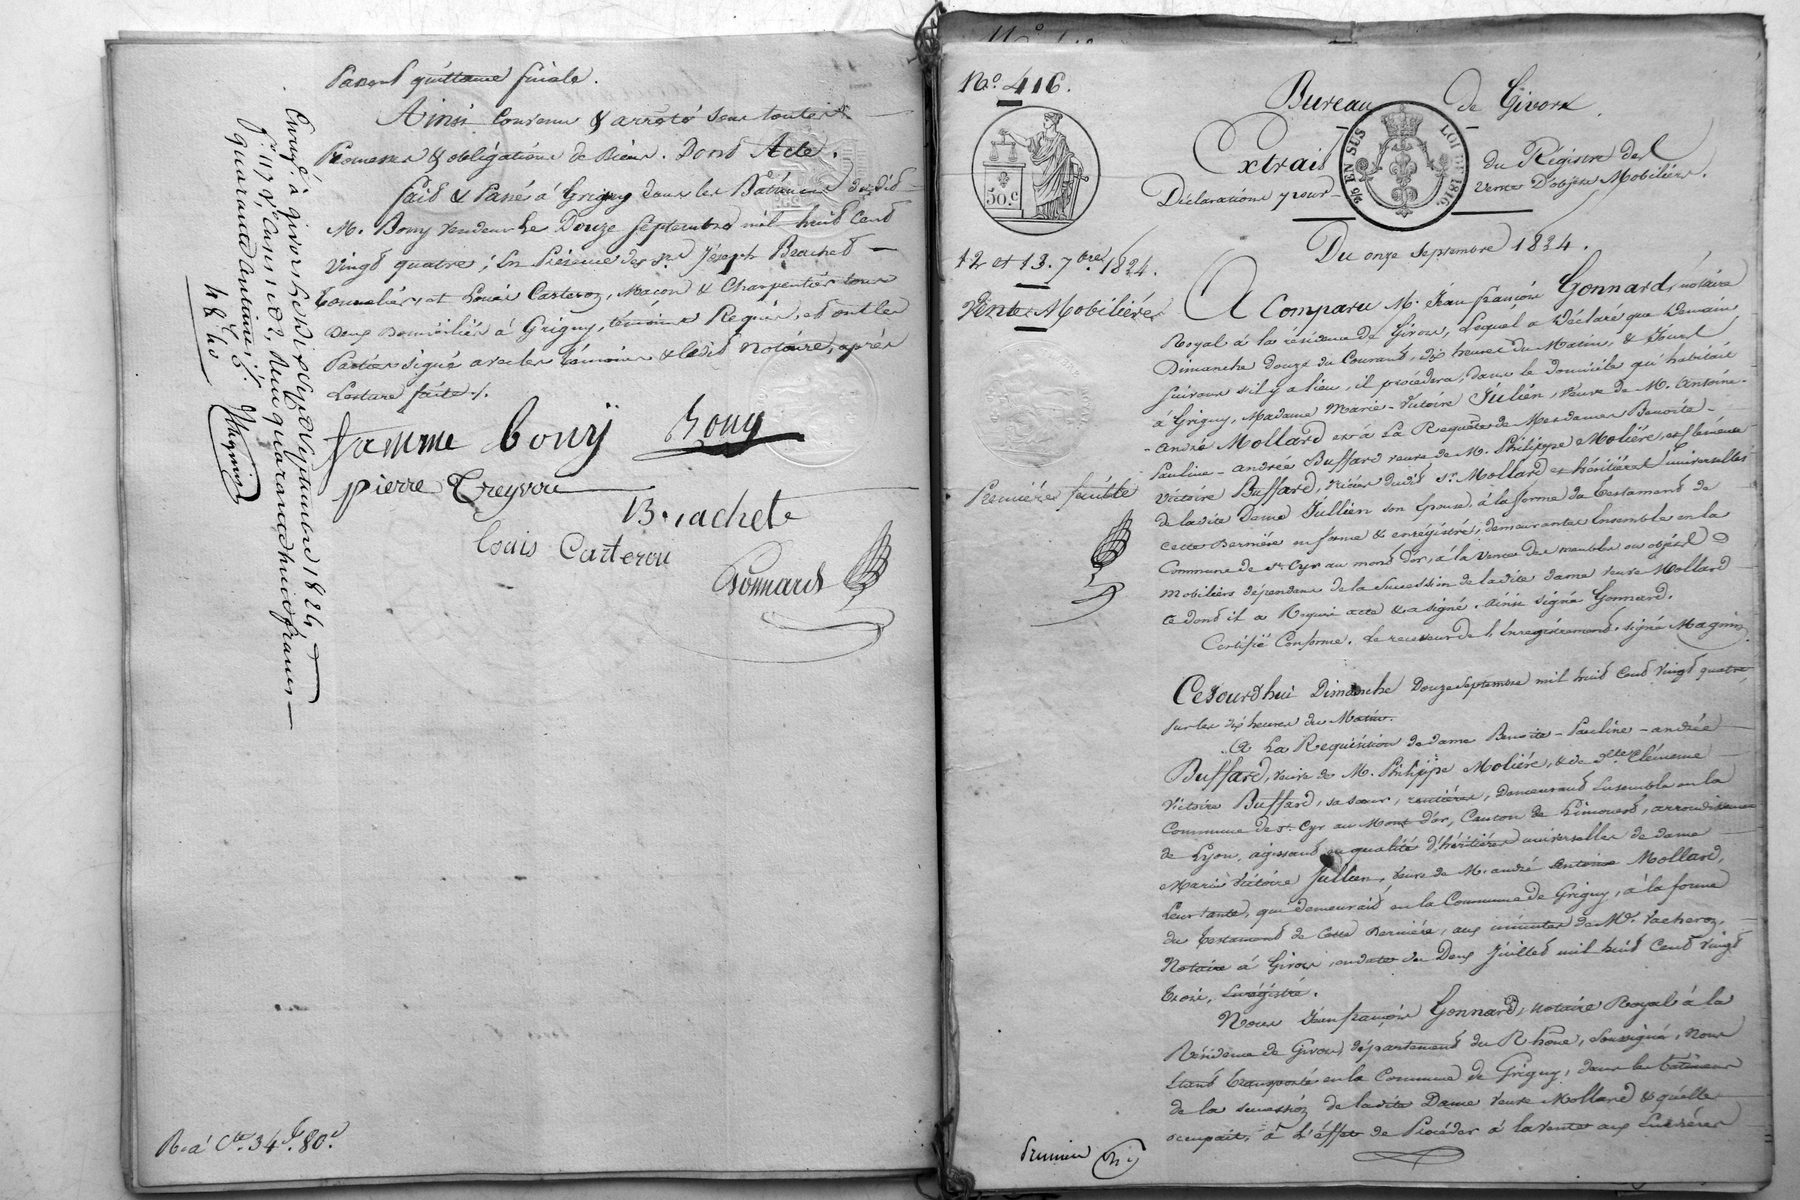 Portant quittance finale.
Ainsi Convenu & arrêté sous toutes
Promesses & obligations de Biens. Dont Acte.
Fait & Passé à Grigny dans les Bâtiments dudit
M. Bouy vendeur Le Douze Septembre mil huit Cent
vingt quatre; En Présence des Srs Joseph Brachet
tonnelier, et Louis Carteron, Maçon & Charpentier tous
deux Domiciliés à Grigny, témoins Requis, et ont les
Parties signé avec les témoins & ledit Notaire, après
Lecture faite./.
famme bouÿ Bouy
pierre Treyvou
Brachet
Louis Carteron
Gonnard
Enregé à Givors le dix Sept Septembre 1824
quarante huit francs
48 f. 40
Magnin
R. à Cte. 34 f. 80 c
No. 416.
50.c
EN SUS
LOI DE 1816.
Bureau de Givors
Extrait du Régistre des
Déclarations pour vente D'objets Mobiliers.
12 et 13. 7bre. 1824.
Vente Mobilière
Première feuille
Du onze Septembre 1824.
A Comparu M. Jean françois Gonnard, notaire
Royal à la résidence de Givors, Lequel a Déclaré que Demain,
Dimanche douze du Courant, dix heures du Matin, & Jours
suivans s'il y a lieu, il procédera, dans le Domicile qu'habitait
à Grigny, Madame Marie-Victoire Jullien, veuve de M. Antoine-
-André Mollard et à La Requête de Mesdames Benoite-
Pauline-andrée Buffard veuve de M. Philippe Molière, et Clémence
Victoire Buffard, nièces dudit Sr. Mollard et héritières universelles
de ladite Dame Jullien son Epouse, à la forme du Testament de
cette Dernière en forme & enregistré, demeurantes Ensemble en la
Commune de St. Cyr au mont d'or, à la vente des meubles ou objets
Mobiliers dépendans de la succession de ladite dame veuve Mollard
ce dont il a Requis acte & a signé. Ainsi signé Gonnard.
Certifié Conforme. Le receveur de l'Enregistrement. signé Magnin.
Cejourd'hui Dimanche Douze Septembre mil huit Cent vingt quatre,
sur les dix heures du Matin.
A La Requisition de dame Benoite-Pauline-andrée
Buffard, veuve de M. Philippe Molière, & de Dlle. Clémence
Victoire Buffard, sa sœur, rentières, Demeurant Ensemble en la
Commune de St. Cyr au Mont d'or, Canton de Limonest, arrondissement
de Lyon, agissant en qualité d'héritières universelles de dame
Marie Victoire Jullien, veuve de M. andré Antoine Mollard,
Leur tante, qui demeurait en la Commune de Grigny, à la forme
du Testament de Cette Dernière, aux minutes de Me. Vacheron,
Notaire à Givors, en date du Deux Juillet mil huit Cent vingt
trois, Enregistré.
Nous Jean françois Gonnard, notaire Royal à la
Résidence de Givors, département du Rhône, Soussigné, Nous
étant transporté en la Commune de Grigny, dans les bâtimens
de la succession de ladite Dame veuve Mollard & qu'elle
occupait, à L'effet de Procéder à la vente aux Enchères